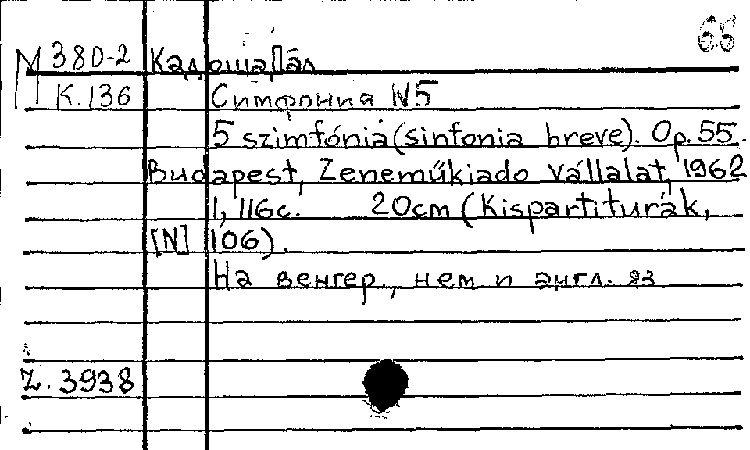 65
М 380-2 Кадоша Пал
К.136 Симфония N5
5 szimfónia (sinfonia breve). Op. 55.
Budapest, Zeneműkiado vállalat, 1962
1, 116с. 20cm (Kispartiturák,
[N] 106).
На венгер., нем и англ. яз
Z. 3938